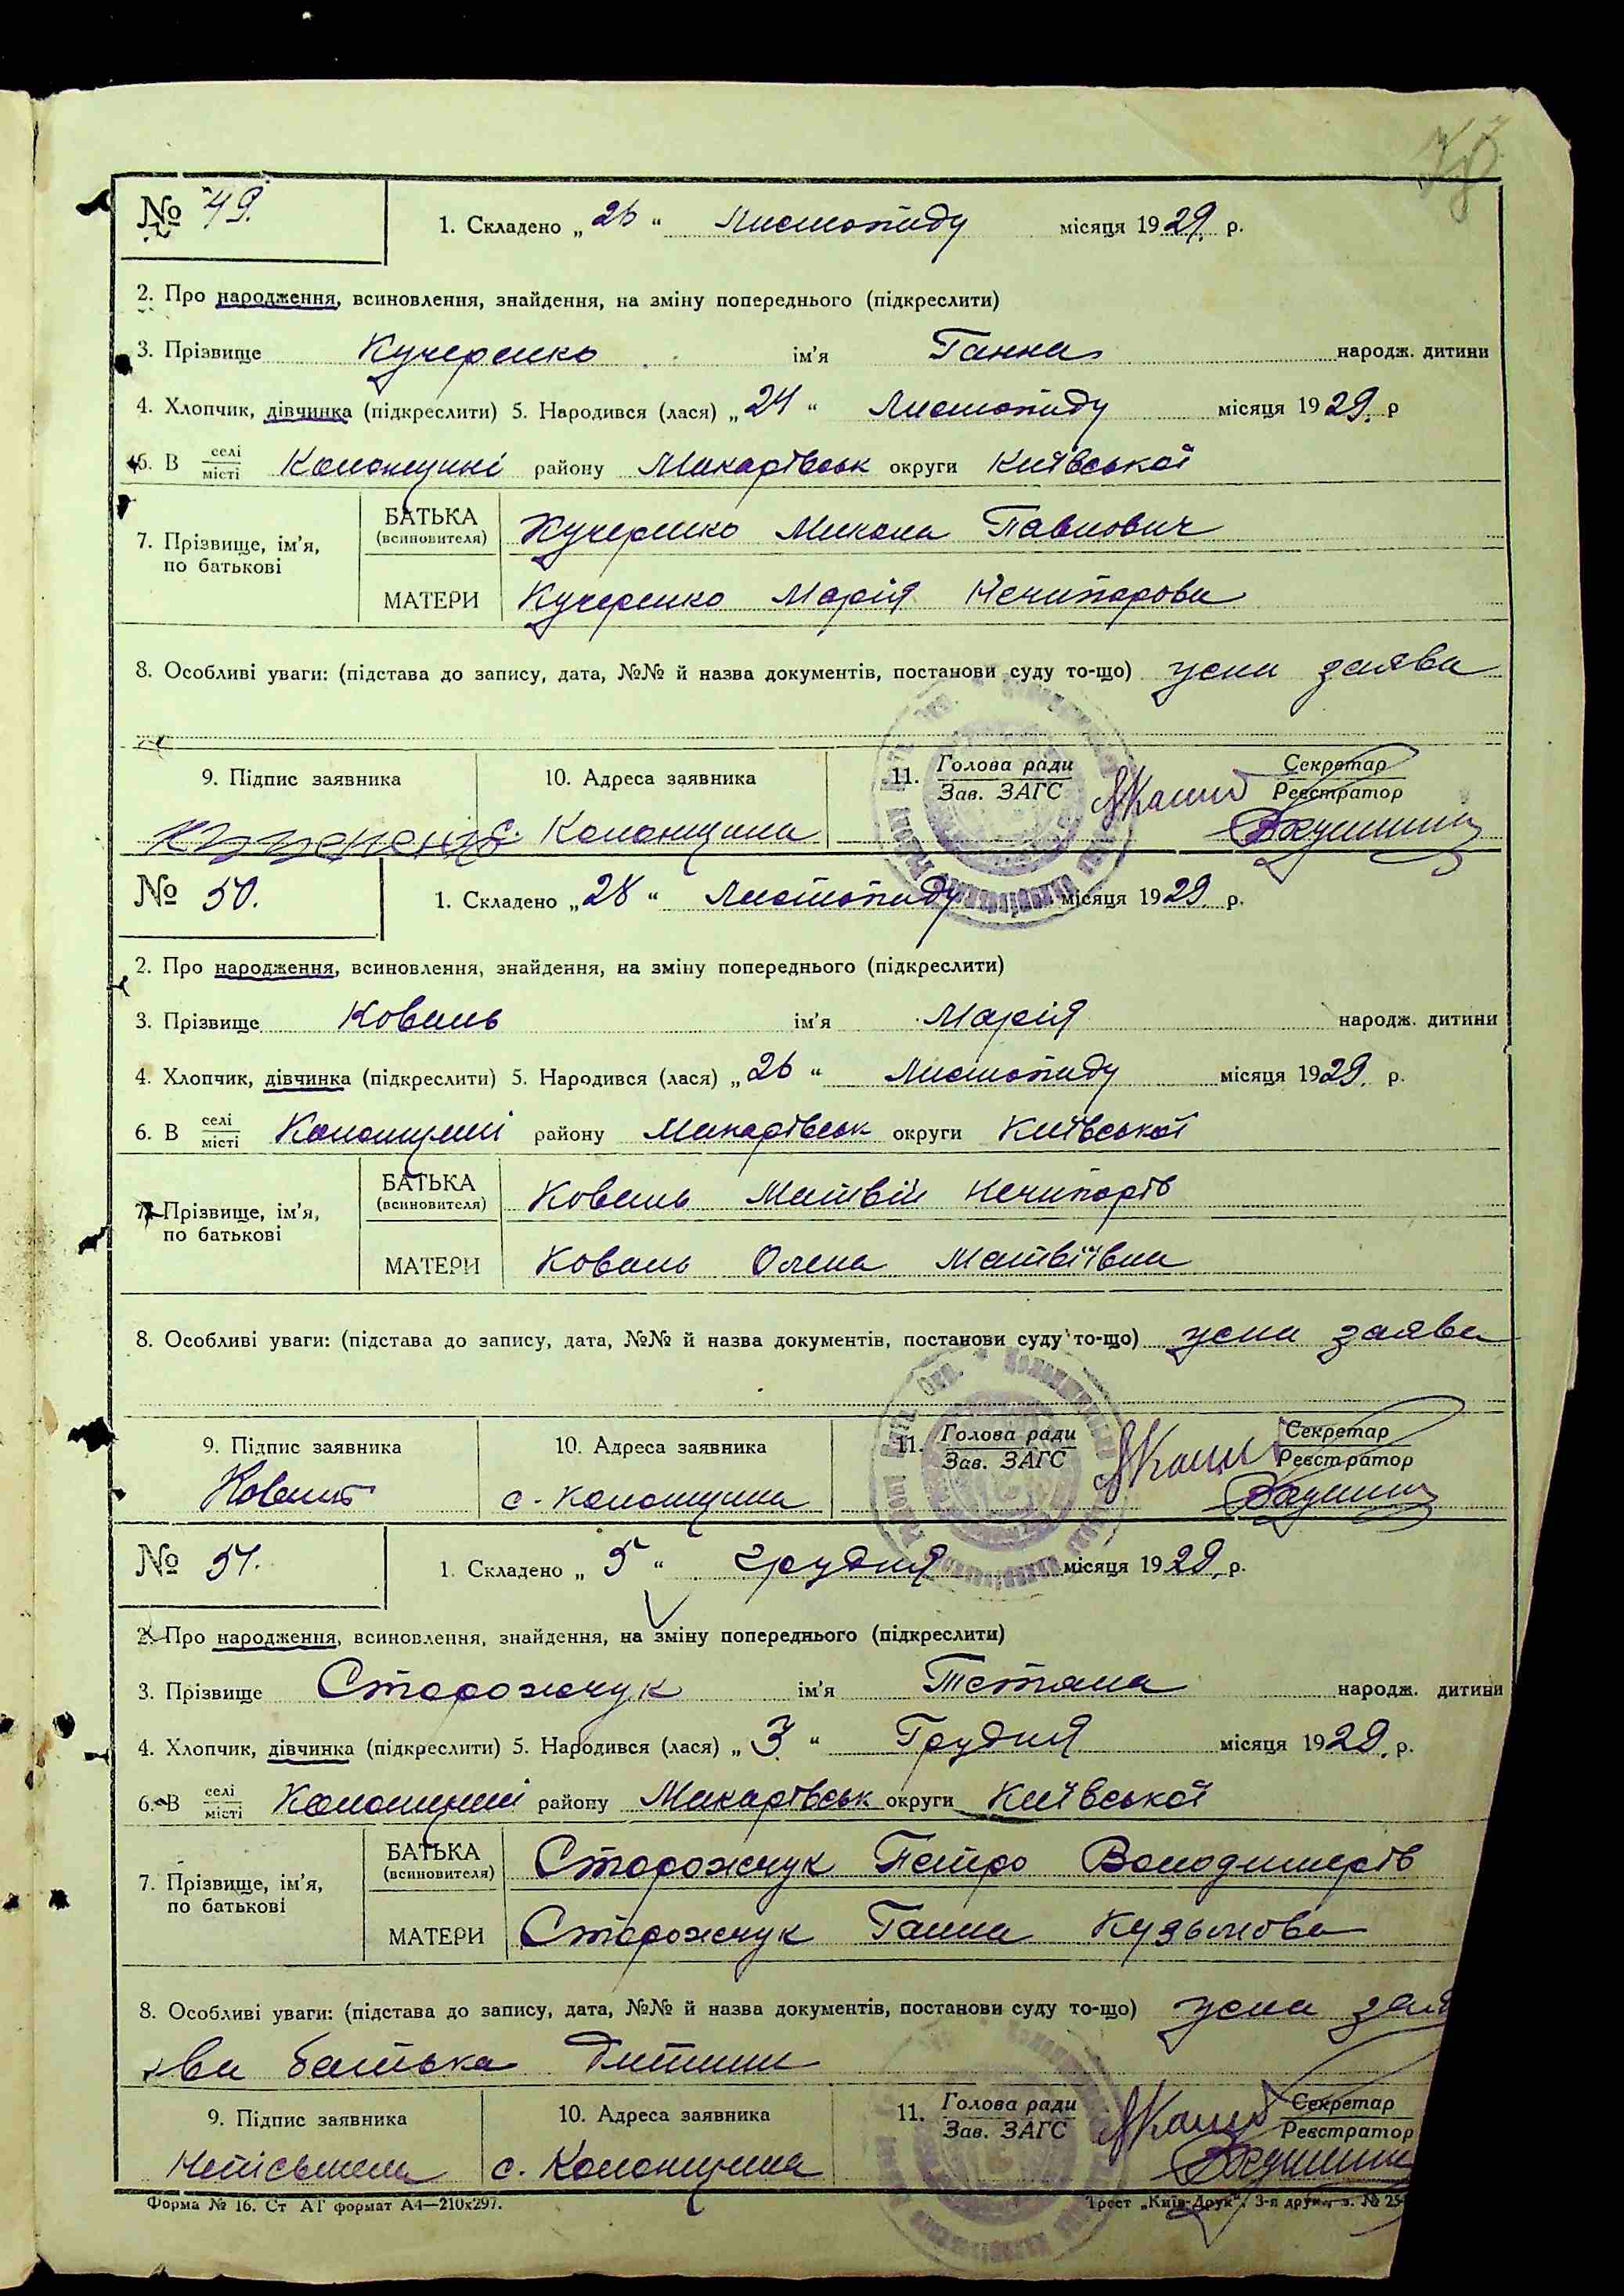 № 49.
1. Складено „ 26 “ Листопаду місяця 1929. р.
2. Про народження, всиновлення, знайдення, на зміну попереднього (підкреслити)
3. Прізвище Кучеренко ім'я Ганна народж. дитини
4. Хлопчик, дівчинка (підкреслити) 5. Народився (лася) „ 24 “ Листопаду місяця 1929. р
6. В селі місті Колонщині району Макарівськ округи Київської
7. Прізвище, ім'я, по батькові
БАТЬКА (всиновителя) Кучеренко Микола Павлович
МАТЕРИ Кучеренко Марія Нечипорова
8. Особливі уваги: (підстава до запису, дата, №№ й назва документів, постанови суду то-що) усна заява
9. Підпис заявника 10. Адреса заявника 11. Голова ради Зав. ЗАГС Секретар Реєстратор
с. Колонщина
№ 50.
1. Складено „ 28 “ Листопаду місяця 1929. р.
2. Про народження, всиновлення, знайдення, на зміну попереднього (підкреслити)
3. Прізвище Коваль ім'я Марія народж. дитини
4. Хлопчик, дівчинка (підкреслити) 5. Народився (лася) „ 26 “ Листопаду місяця 1929. р.
6. В селі місті Колонщині району Макарівськ округи Київської
7. Прізвище, ім'я, по батькові
БАТЬКА (всиновителя) Коваль Матвій Нечипорів
МАТЕРИ Коваль Олена Матвіївна
8. Особливі уваги: (підстава до запису, дата, №№ й назва документів, постанови суду то-що) усна заява
9. Підпис заявника 10. Адреса заявника 11. Голова ради Зав. ЗАГС Секретар Реєстратор
Коваль с. Колонщина
№ 51.
1. Складено „ 5 “ грудня місяця 1929. р.
2. Про народження, всиновлення, знайдення, на зміну попереднього (підкреслити)
3. Прізвище Сторожчук ім'я Тетяна народж. дитини
4. Хлопчик, дівчинка (підкреслити) 5. Народився (лася) „ 3 “ Грудня місяця 1929. р.
6. В селі місті Колонщині району Макарівськ округи Київської
7. Прізвище, ім'я, по батькові
БАТЬКА (всиновителя) Сторожчук Петро Володимерів
МАТЕРИ Сторожчук Ганна Кузьмова
8. Особливі уваги: (підстава до запису, дата, №№ й назва документів, постанови суду то-що) усна зая
ва батька дитини
9. Підпис заявника 10. Адреса заявника 11. Голова ради Зав. ЗАГС Секретар Реєстратор
Неписьмена с. Колонщина
Форма № 16. Ст АТ формат А4—210х297. Трест „Київ-Друк“. 3-я друк., з. № 25